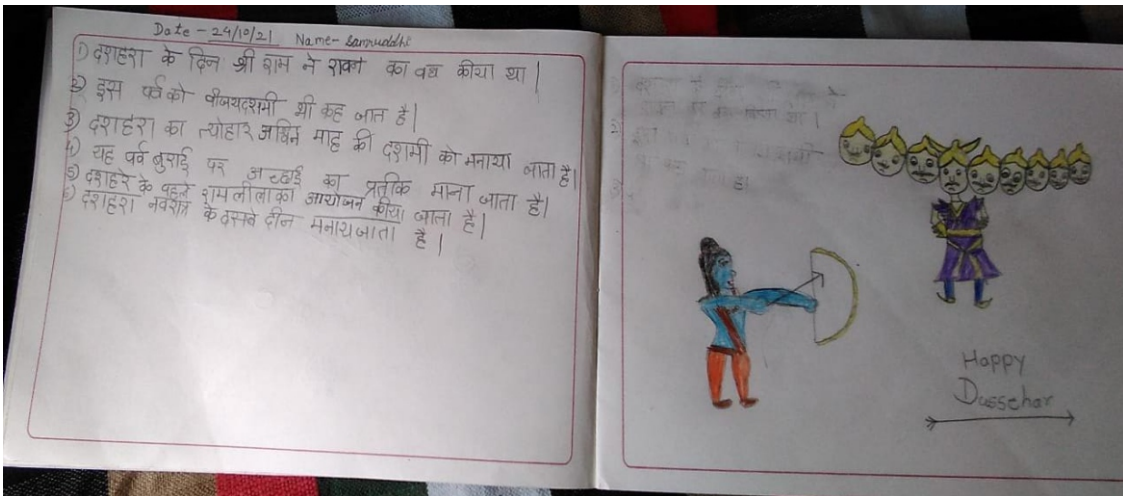 Date - 24/10/21 Name- Samruddhi
1) दशहरा के दिन श्री राम ने रावण का वध कीया था |
2) इस पर्व को वीजयदशमी भी कह जात है |
3) दशहरा का त्योहार अश्विन माह की दशमी को मनाया जाता है |
4) यह पर्व बुराई पर अच्छाई का प्रतीक माना जाता है |
5) दशहरे के पहले रामलीला का आयोजन कीया जाता है |
6) दशहरा नवरात्र के दसवे दीन मनाय जाता है |
Happy
Dussehar